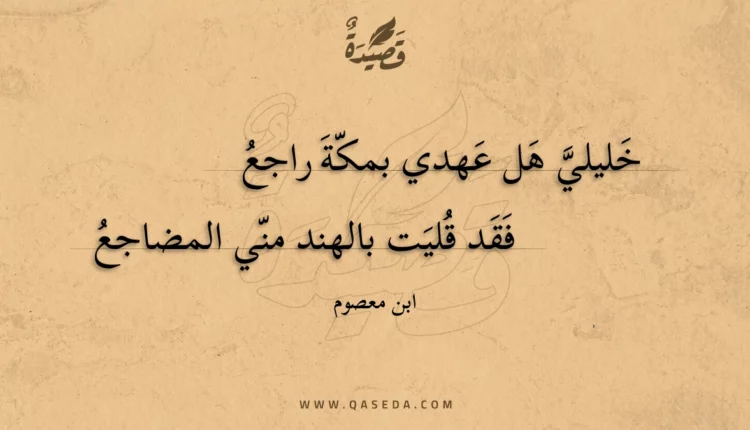 قَصِيدَةٌ
خَليليَّ هَل عَهدي بمكّةَ راجعُ
فَقَد قُليَت بالهند منّي المضاجعُ
ابن معصوم
WWW.QASEDA.COM